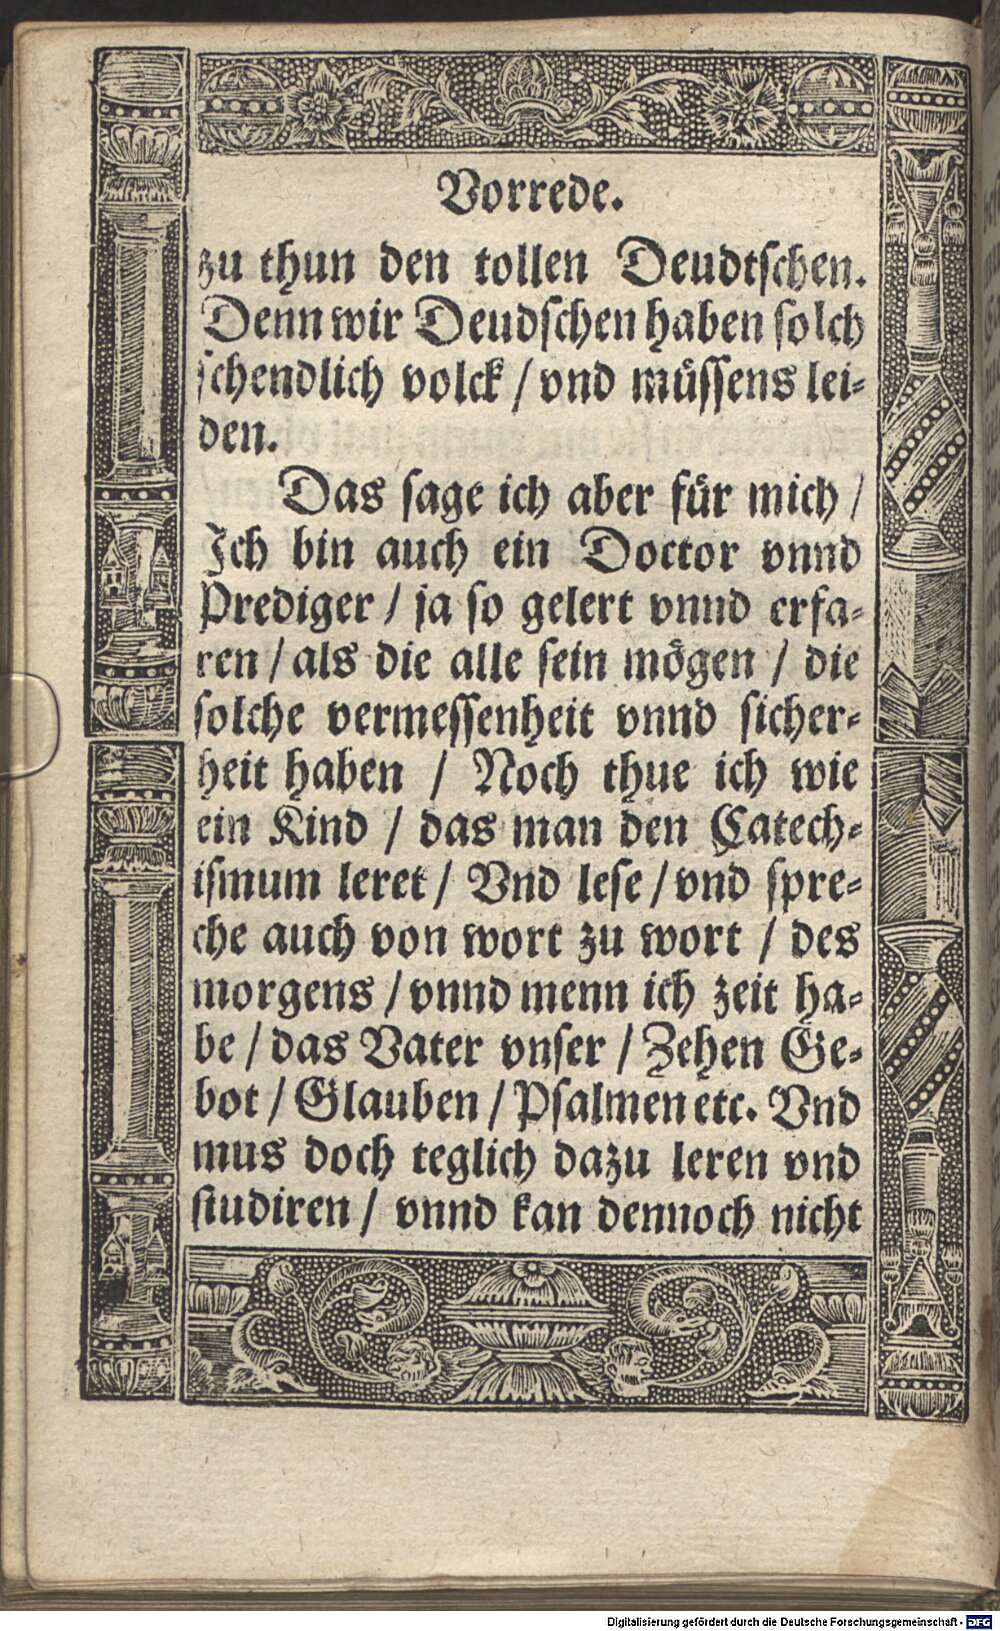 Vorrede.
zu thun den tollen Deudtschen.
Denn wir Deudschen haben solch
schendlich volck / vnd müssens lei-
den.
Das sage ich aber für mich /
Ich bin auch ein Doctor vnnd
Prediger / ja so gelert vnnd erfa-
ren / als die alle sein mögen / die
solche vermessenheit vnnd sicher-
heit haben / Noch thue ich wie
ein Kind / das man den Catech-
ismum leret / Vnd lese / vnd spre-
che auch von wort zu wort / des
morgens / vnnd menn ich zeit ha-
be / das Vater vnser / Zehen Ge-
bot / Glauben / Psalmen etc. Vnd
mus doch teglich dazu leren vnd
studiren / vnnd kan dennoch nicht
Digitalisierung gefördert durch die Deutsche Forschungsgemeinschaft - DFG